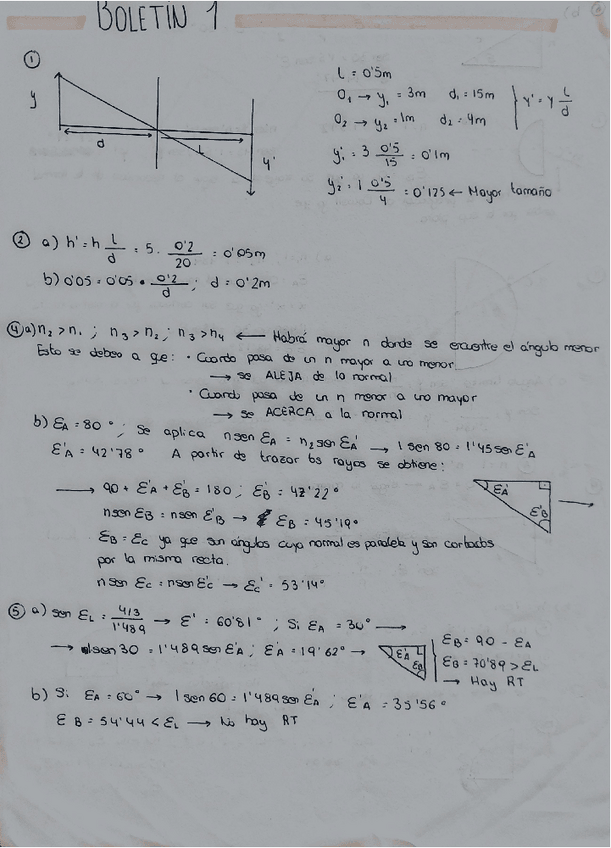 BOLETIN 1
①
y
d
L
y'
L = 0'5m
O₁ → y₁ = 3m d₁ = 15m
O₂ → y₂ = 1m d₂ = 4m
y' = y L/d
y₁' = 3 0'5/15 = 0'1m
y₂' = 1 0'5/4 = 0'125 ← Mayor tamaño
② a) h' = h L/d = 5 · 0'2/20 = 0'05m
b) 0'05 = 0'05 · 0'2/d ; d = 0'2m
④ a) n₂ > n₁ ; n₃ > n₂ ; n₃ > n₄ ← Habrá mayor n donde se encuentre el ángulo menor
Esto se debeo a que: · Cuando pasa de un n mayor a uno menor
→ se ALEJA de la normal
· Cuando pasa de un n menor a uno mayor
→ se ACERCA a la normal
b) εA = 80° ; Se aplica n sen εA = n₂ sen ε'A → 1 sen 80 = 1'45 sen ε'A
ε'A = 42'78° A partir de trazar los rayos se obtiene:
→ 90 + ε'A + ε'B = 180 ; ε'B = 47'22°
n sen εB = n sen ε'B → εB = 45'19°
εB = εC ya que son ángulos cuya normal es paralela y son cortados
por la misma recta.
n sen εC = n sen ε'C → εC' = 53'14°
ε'A
ε'B
⑤ a) sen εL = 4/3/1'489 → ε' = 60'81° ; Si εA = 30° →
→ 1 sen 30 = 1'489 sen ε'A ; ε'A = 19'62° →
ε'A
εB
εB = 90 - εA
εB = 70'89 > εL
→ Hay RT
b) Si εA = 60° → 1 sen 60 = 1'489 sen ε'A ; ε'A = 35'56°
εB = 54'44 < εL → No hay RT